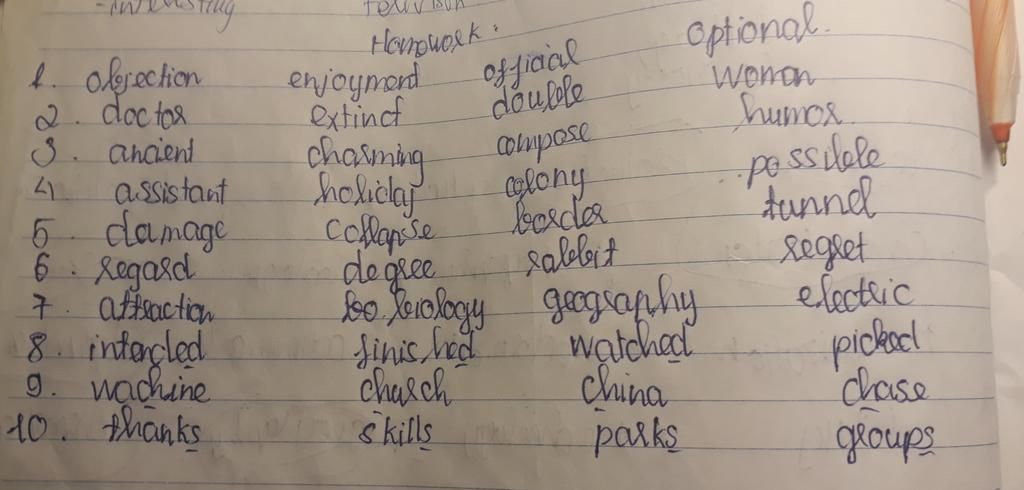 - interesting
Homework:
1. objection enjoyment official optional.
2. doctor extinct double woman
3. ancient charming compose humor.
4. assistant holiday colony possible
5. damage collapse border tunnel
6. regard degree rabbit regret
7. attraction biology geography electric
8. intended finished watched picked
9. machine church china chase
10. thanks skills parks groups